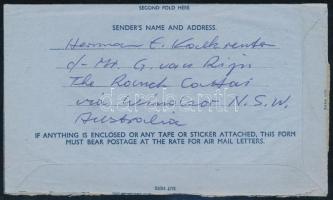 SECOND FOLD HERE
SENDER'S NAME AND ADDRESS.
Herman E.
c/- Mr. G. van Rijn
The Ranch
via N.S.W.
Australia
IF ANYTHING IS ENCLOSED OR ANY TAPE OR STICKER ATTACHED, THIS FORM
MUST BEAR POSTAGE AT THE RATE FOR AIR MAIL LETTERS.